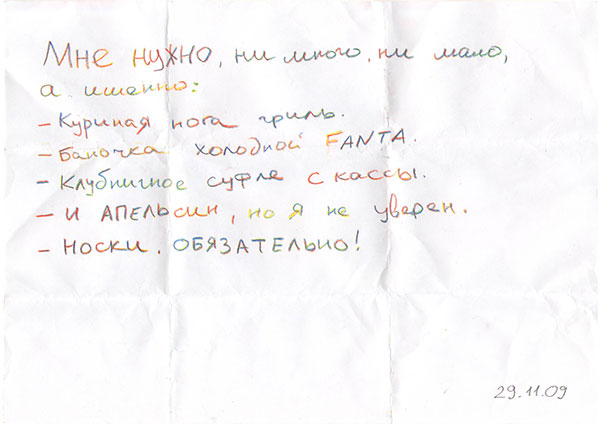 Мне нужно, ни много, ни мало,
а именно:
- Куриная нога гриль.
- Баночка холодной FANTA.
- Клубничное суфле с кассы.
- и АПЕЛЬСИН, но я не уверен.
- НОСКИ. ОБЯЗАТЕЛЬНО!
29.11.09